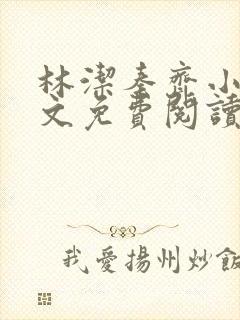 林潔秦齊小
文免費閱讀
我愛揚州炒飯